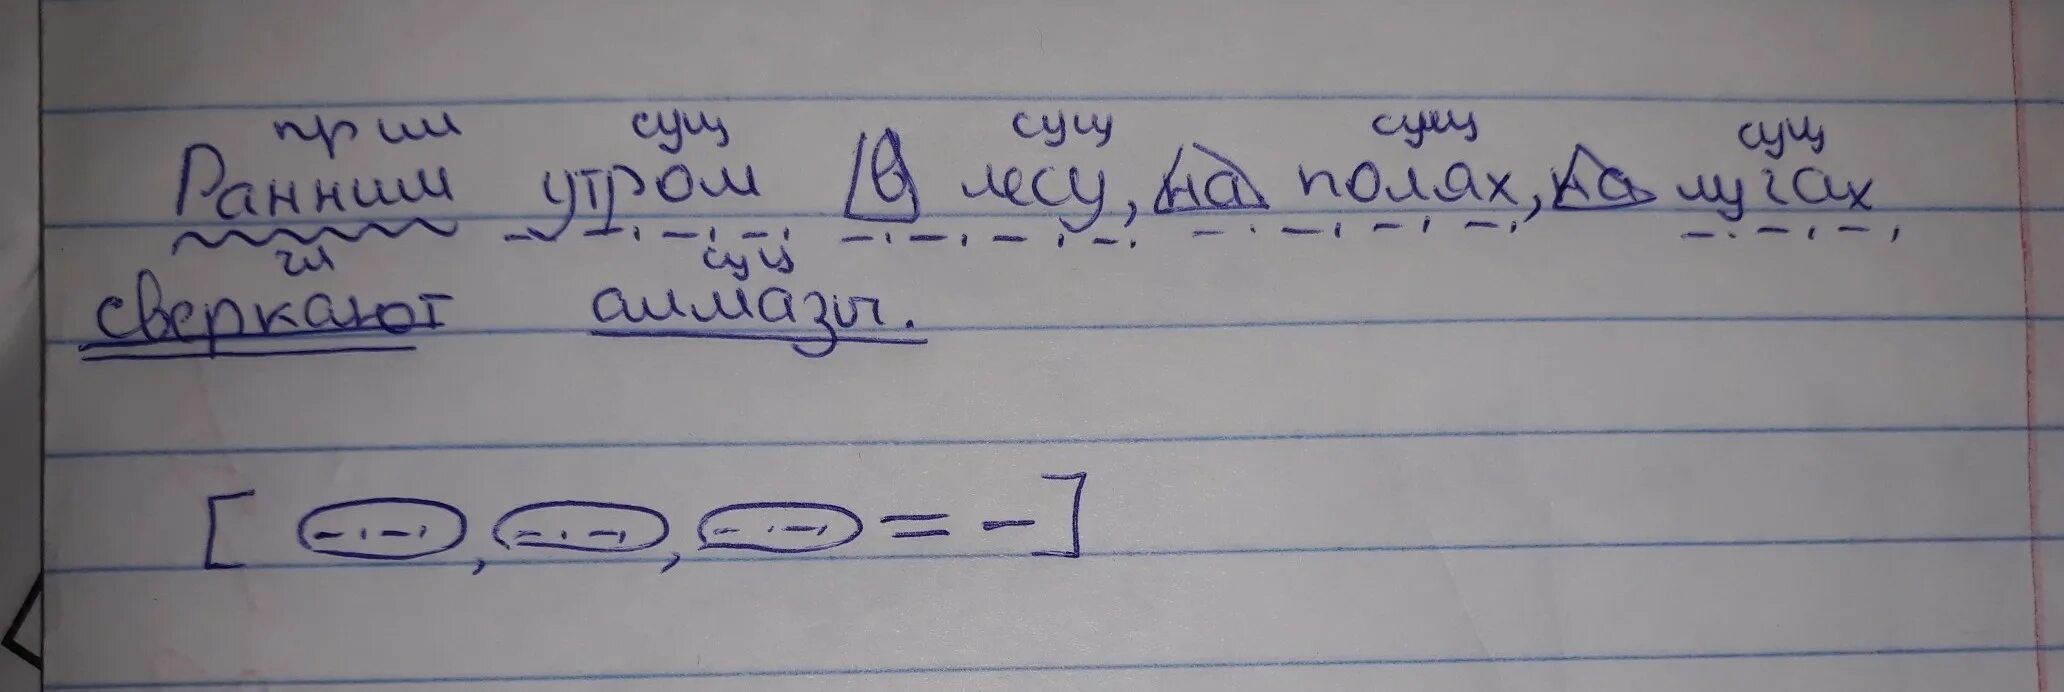 прил сущ сущ сущ сущ
Ранним утром в лесу, на полях, на лугах
гл сущ
сверкают алмазы.
[ -·-·, -·-·, -·-· = - ]